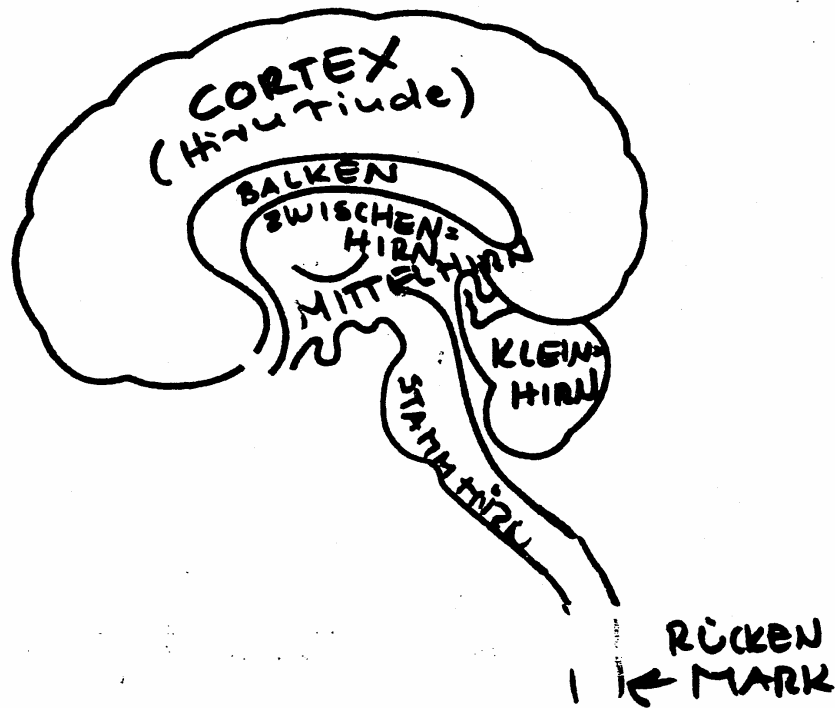 CORTEX
(Hirnrinde)
BALKEN
ZWISCHEN=
HIRN
MITTELHIRN
KLEIN=
HIRN
STAMMHIRN
RÜCKEN
MARK